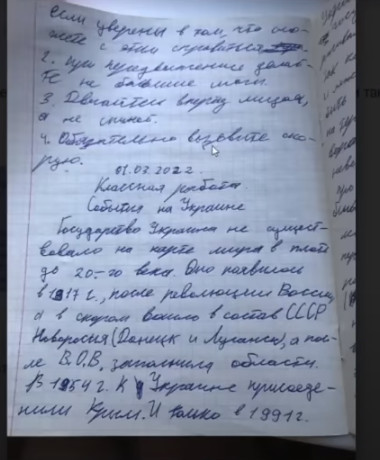 если уверены в том, что смо-
жете с этим справиться
2. При передвижение делай-
те не большие шаги.
3. Двигайтесь вперед лицом,
а не спиной.
4. Обязательно вызовите ско-
рую.
01.03.2022.
Классная работа.
События на Украине
Государство Украина не сущест-
вовало на карте мира в плоть
до 20-го века. Оно появилось
в 1917 г., после революции в России,
а в скором вошло в состав СССР
Новоросия (Донецк и Луганск), а пос-
ле В.О.В, западные области.
В 1954 г. К Украине присоеди-
нили Крым. И только в 1991 г.